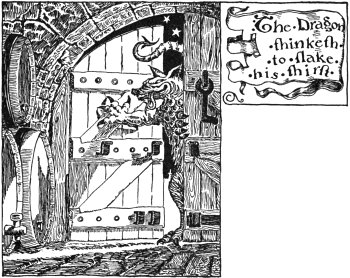 The Dragon
thinketh
to slake
his thirst.